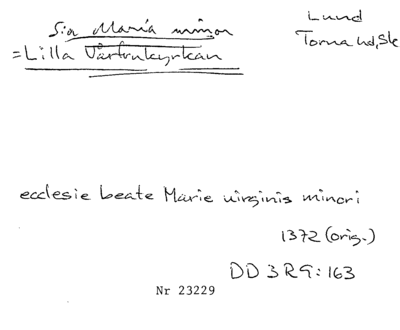 S:a Maria minor
= Lilla Vårfrukyrkan
Lund
Torna hd, Sk
ecclesie beate Marie uirginis minori
1372 (orig.)
DD 3 R 9: 163
Nr 23229